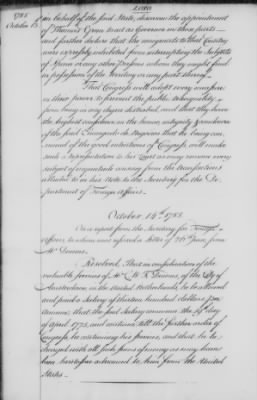 1785
October 13.
on behalf of the said State, disavow the appointment
of Thomas Green as a Governor in those parts
and further declare that the emigrants to that Country
were expressly prohibited from interrupting the Subjects
of Spain or any other Persons whom they might find
in possession of the territory or any part thereof.
That Congress will adopt every measure
in their power to prevent the public tranquility
from being in any degree disturbed, and that they have
the highest confidence in the honor, integrity & candour
of the said Encargado de Negocios that he being con-
vinced of the good intentions of Congress, will make
such a representation to his Court as may remove every
subject of inquietude arising from the transactions
alluded to in his Note to the Secretary for the De-
partment of Foreign Affairs.
October 14th 1785
On a report from the Secretary for Foreign
Affairs, to whom was referred a Letter of 20th Jan from
Mr Dumas.
Resolved, That in consideration of the
valuable services of Mr. C. W. F. Dumas, of the City of
Amsterdam, in the United Netherlands, he be allowed
and paid a Salary of thirteen hundred dollars per
annum; that the said Salary commence the 19 day
of April 1775, and continue till the further order of
Congress, he continuing his services, and that he be
charged with all such sums of money as may have
been heretofore advanced to him from the United
States.